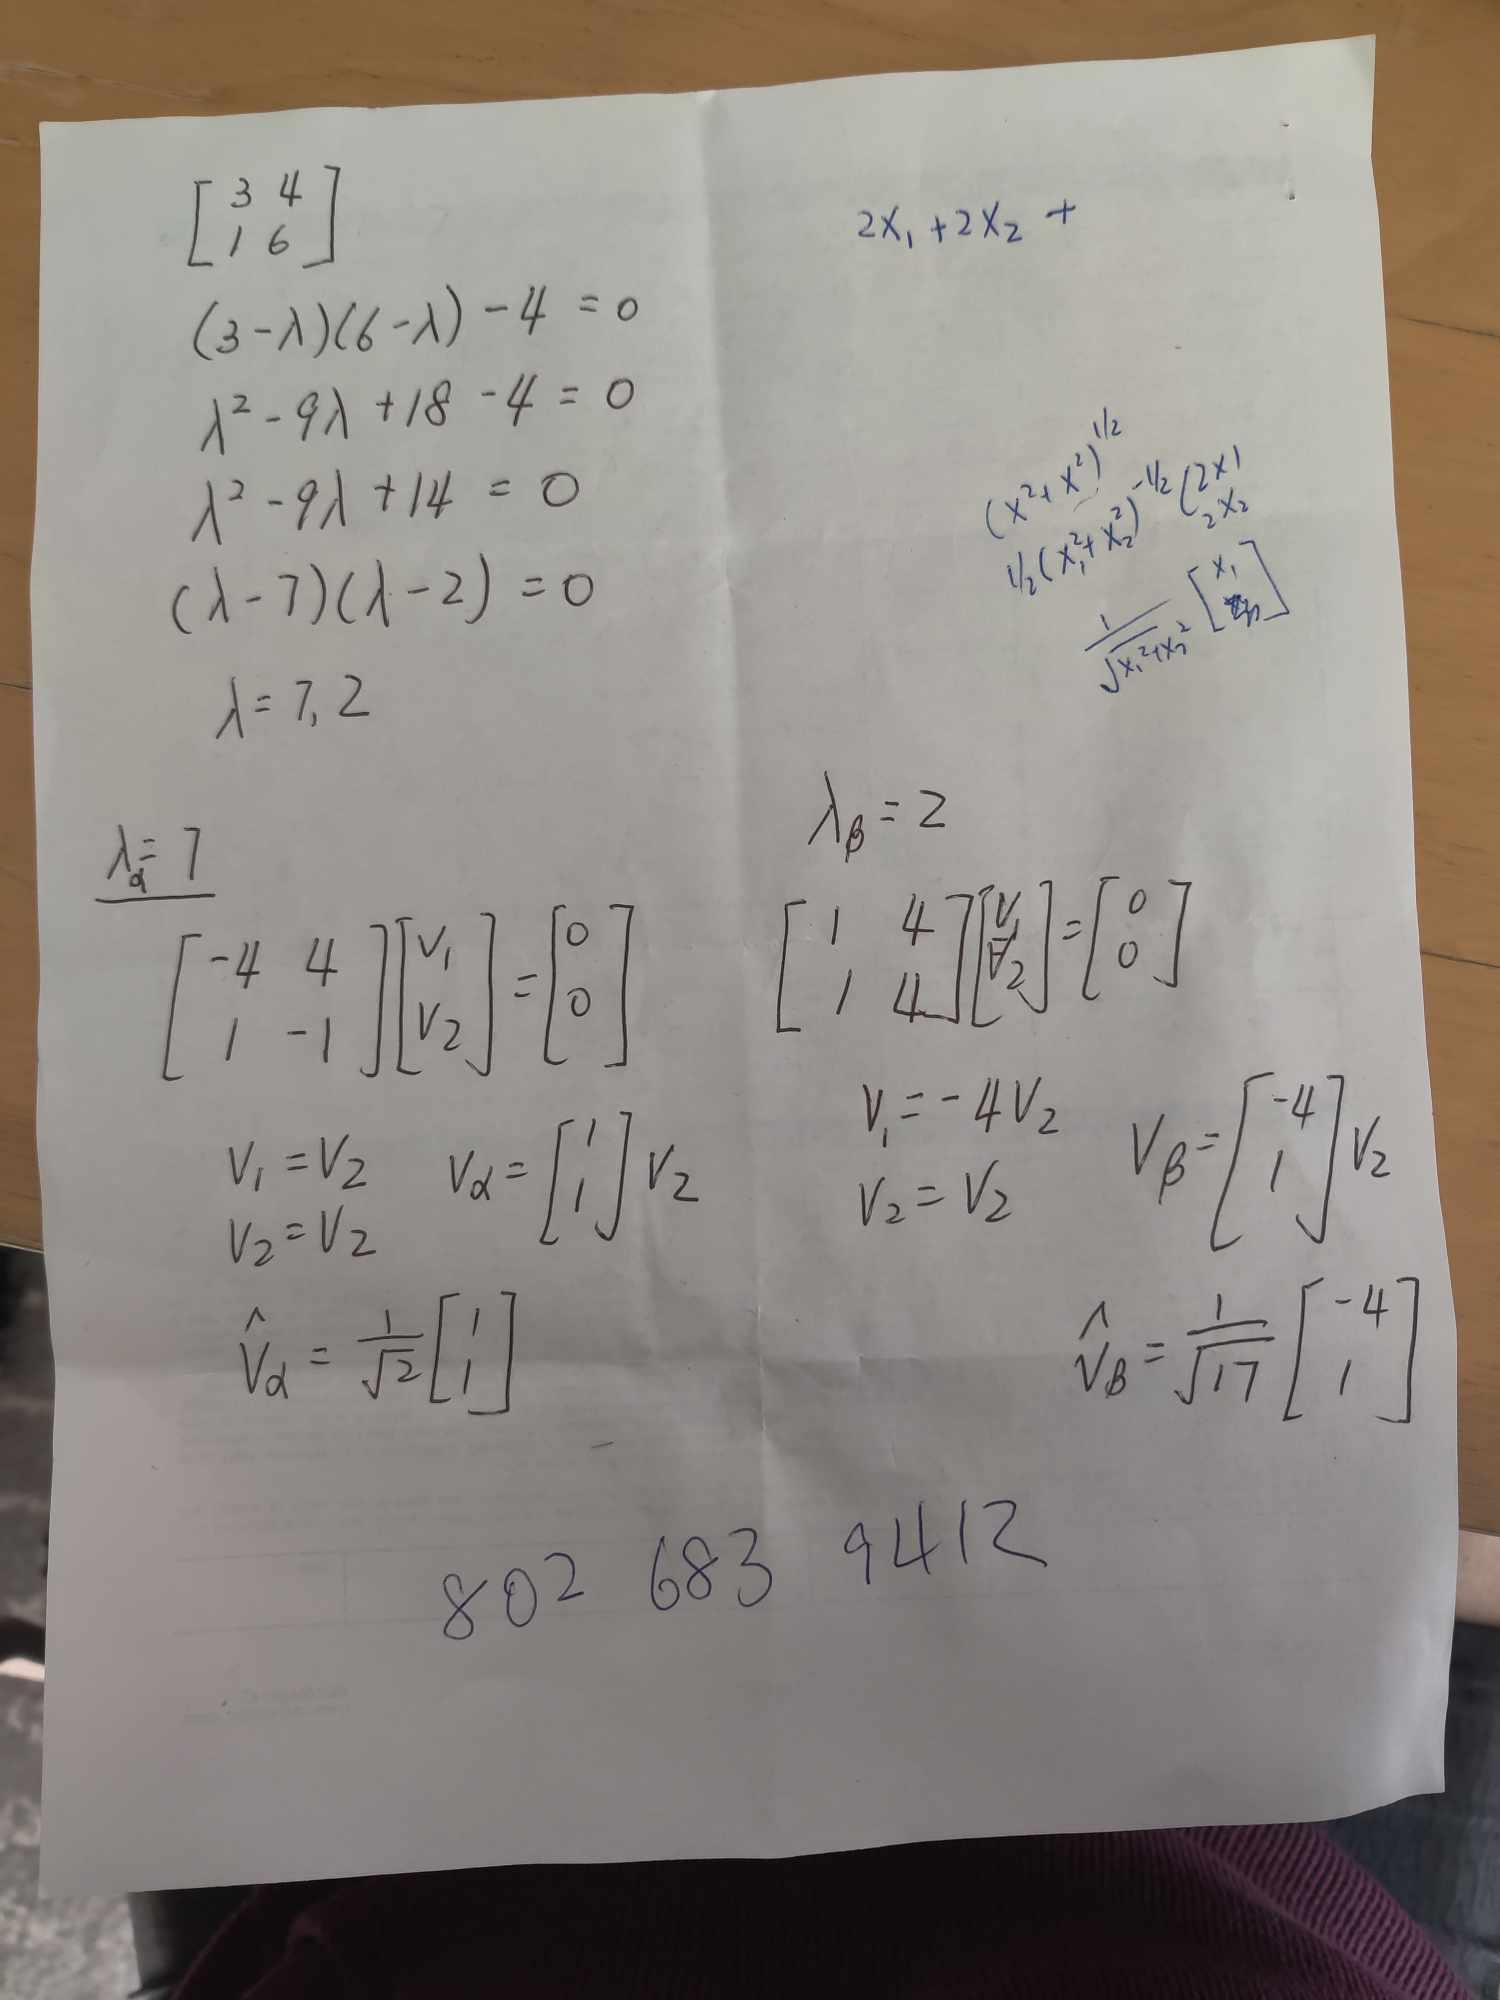 [3 4
1 6]
(3-λ)(6-λ) - 4 = 0
λ² - 9λ + 18 - 4 = 0
λ² - 9λ + 14 = 0
(λ - 7)(λ - 2) = 0
λ = 7, 2
2x₁ + 2x₂ +
(x² + x²)^1/2
1/2 (x₁² + x₂²)^-1/2 (2x1
2x₂
1/√x₁²+x₂² [x₁
]
λα = 7
[-4 4
1 -1] [v₁
v₂] = [0
0]
v₁ = v₂
v₂ = v₂
vα = [1
1] v₂
v̂α = 1/√2 [1
1]
λβ = 2
[1 4
1 4] [v₁
v₂] = [0
0]
v₁ = -4v₂
v₂ = v₂
vβ = [-4
1] v₂
v̂β = 1/√17 [-4
1]
802 683 9412